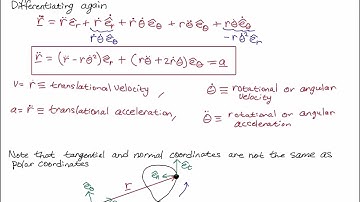 Differentiating again
r̈ = r̈ ê_r + ṙ ê̇_r + ṙθ̇ ê_θ + rθ̈ ê_θ + rθ̇ ê̇_θ
θ̇ ê_θ -rθ̇² ê_r
r̈ = (r̈ - rθ̇²) ê_r + (rθ̈ + 2ṙθ̇) ê_θ = a
v = ṙ ≡ translational velocity , θ̇ ≡ rotational or angular velocity
a = r̈ ≡ translational acceleration, θ̈ ≡ rotational or angular acceleration
Note that tangential and normal coordinates are not the same as
polar coordinates
ê_t
ê_n
ê_θ
r